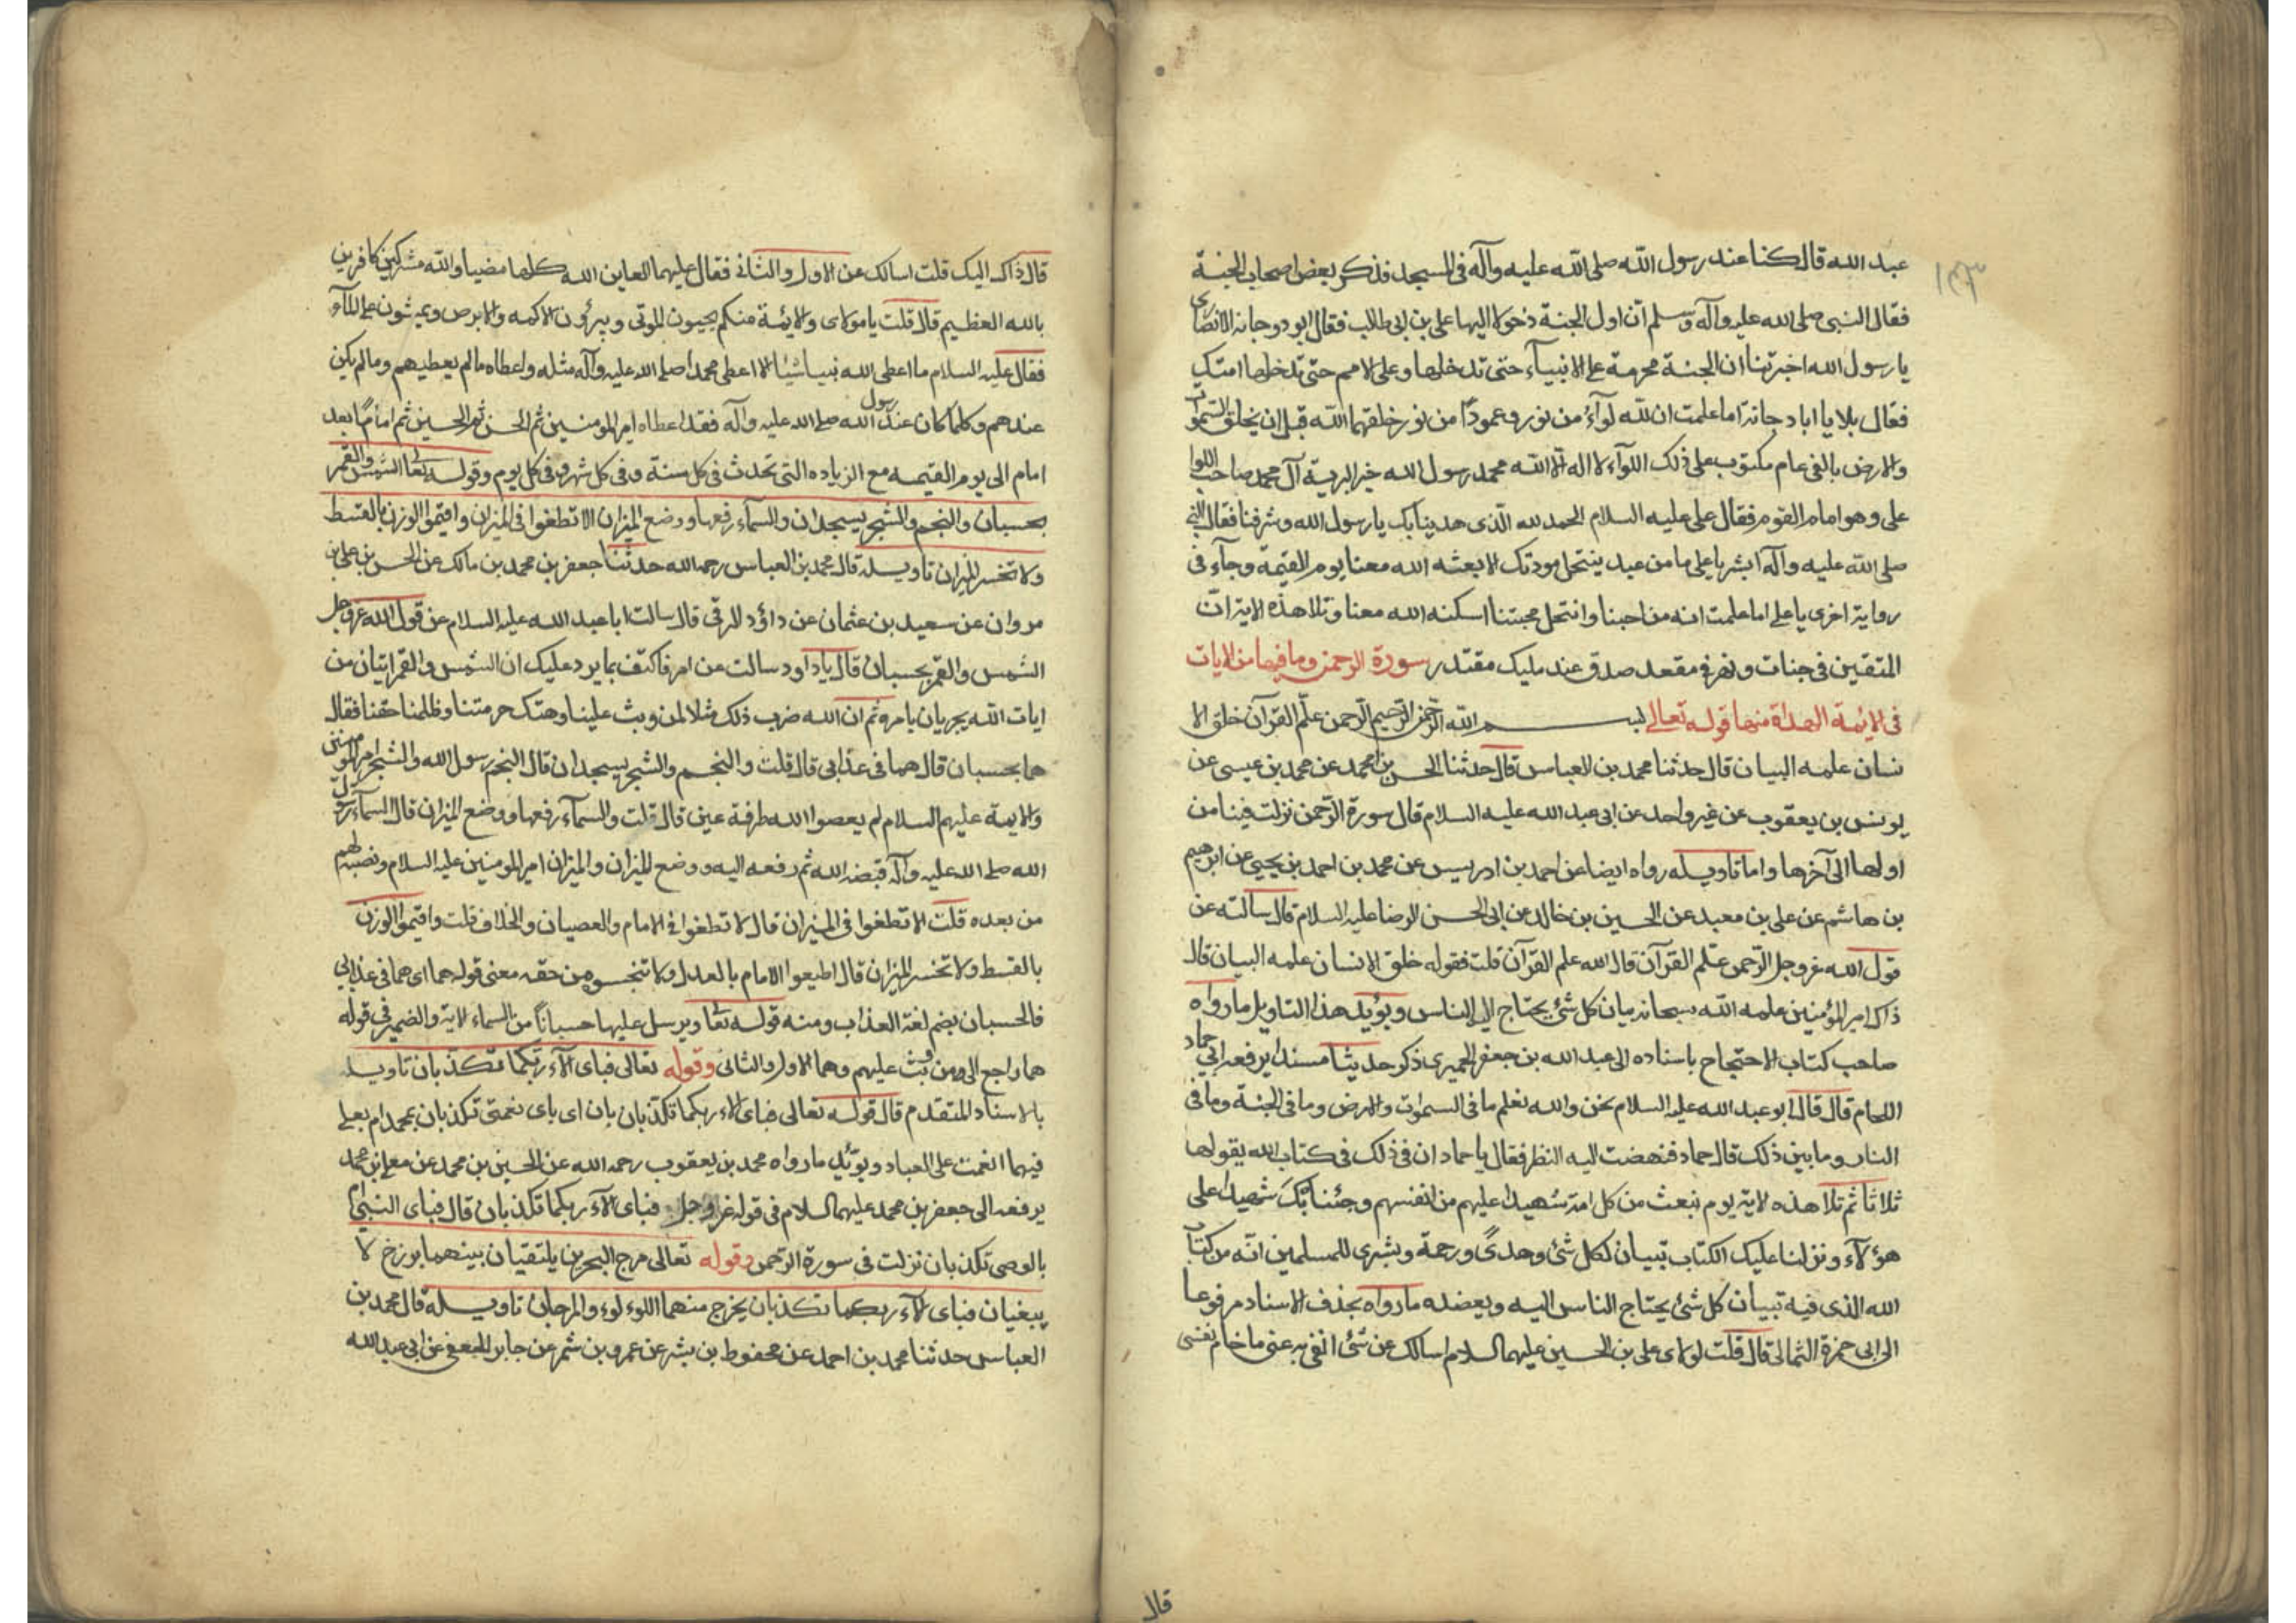 عبد الله قال كنا عند رسول الله صلى الله عليه وآله في المسجد فذكر بعض اصحابه الجنة
فقال النبي صلى الله عليه وآله وسلم ان اول الجنة دخولا اليها علي بن ابي طالب فقال ابو دوجانه الانصاري
يا رسول الله اخبرتنا ان الجنة محرمة على الانبياء حتى تدخلها وعلى الامم حتى تدخلها امتك
فقال بلا يا ابا دجانة اما علمت ان لله لوآء من نور وعمودا من نور خلقهما الله قبل ان يخلق السموات
والارض بالفي عام مكتوب على ذلك اللوآء لا اله الا الله محمد رسول الله خير البرية آل محمد صاحب اللوا
علي وهو امام القوم فقال علي عليه السلام الحمد لله الذي هدينا بك يا رسول الله وشرفنا فقال النبي
صلى الله عليه وآله ابشر يا علي ما من عبد ينتحل مودتك الا بعثه الله معنا يوم القيمة وجآء في
رواية اخرى يا علي اما علمت انه من احبنا وانتحل محبتنا اسكنه الله معنا وتلا هذه الاية ان
المتقين في جنات ونهر في مقعد صدق عند مليك مقتدر سورة الرحمن وما فيها من الايات
في الائمة الهداة منها قوله تعالى بسم الله الرحمن الرحيم الرحمن علم القرآن خلق الا
نسان علمه البيان قال حدثنا محمد بن العباس قال حدثنا الحسن بن محمد عن محمد بن عيسى عن
يونس بن يعقوب عن غير واحد عن ابي عبد الله عليه السلام قال سورة الرحمن نزلت فينا من
اولها الى آخرها واما تاويله رواه ايضا عن احمد بن ادريس عن محمد بن احمد بن يحيى عن ابرهيم
بن هاشم عن علي بن معبد عن الحسين بن خالد عن ابي الحسن الرضا عليه السلام قال سالته عن
قول الله عز وجل الرحمن علم القرآن قال الله علم القرآن قلت فقوله خلق الانسان علمه البيان قال
ذاك امير المؤمنين علمه الله سبحانه بيان كل شئ يحتاج اليه الناس ويؤيد هذا التاويل ما رواه
صاحب كتاب الاحتجاج باسناده الى عبد الله بن جعفر الحميري ذكر حديثا مسندا يرفعه الى حماد
اللحام قال قال ابو عبد الله عليه السلام نحن والله نعلم ما في السموات والارض وما في الجنة وما في
النار وما بين ذلك قال حماد فنهضت اليه النظر فقال يا حماد ان في ذلك في كتاب الله يقولها
ثلاثا ثم تلا هذه الاية يوم نبعث من كل امة شهيدا عليهم من انفسهم وجئنا بك شهيدا على
هؤلآء ونزلنا عليك الكتاب تبيان لكل شئ وهدى ورحمة وبشرى للمسلمين انه من كتاب
الله الذي فيه تبيان كل شئ يحتاج الناس اليه ويعضده ما رواه بحذف الاسناد مرفوعا
الى ابي حمزة الثمالي قال قلت لمولاي علي بن الحسين عليهما السلام اسالك عن شئ انفي به عني ما خامر نفسي
قال
قال ذاك اليك قلت اسالك عن الاول والثاني فقال عليهما لعاين الله كلها مضيا والله مشركين كافرين
بالله العظيم قال قلت يا مولاي والائمة منكم يحيون الموتى ويبرؤن الاكمه والابرص ويمشون على المآء
فقال عليه السلام ما اعطى الله نبيا شيئا الا اعطى محمدا صلى الله عليه وآله مثله واعطاه ما لم يعطيهم وما لم يكن
عندهم وكلما كان عند رسول الله صلى الله عليه وآله فقد اعطاه امير المومنين ثم الحسن ثم الحسين ثم اماما بعد
امام الى يوم القيمه مع الزياده التي تحدث في كل سنة وفي كل شهر وفي كل يوم وقوله تعا الشمس والقمر
بحسبان والنجم والشجر يسجدان والسمآء رفعها ووضع الميزان الا تطغوا في الميزان واقيموا الوزن بالقسط
ولا تخسر الميزان تاويله قال محمد بن العباس رحمه الله حدثنا جعفر بن محمد بن مالك عن الحسن بن علي بن
مروان عن سعيد بن عثمان عن داؤد الرقي قال سالت ابا عبد الله عليه السلام عن قول الله عز وجل
الشمس والقمر بحسبان قال يا داود سالت عن امر فاكتف بما يرد عليك ان الشمس والقمر ايتان من
ايات الله يجريان بامره ثم ان الله ضرب ذلك مثلا لمن وثب علينا وهتك حرمتنا وظلمنا حقنا فقال
هما بحسبان قال هما في عذابي قال قلت والنجم والشجر يسجدان قال النجم رسول الله والشجر امير المومنين
والايمة عليهم السلام لم يعصوا الله طرفة عين قال قلت والسمآء رفعها ووضع الميزان قال السمآء رسول
الله صلى الله عليه وآله قبضه الله ثم رفعه اليه ووضع الميزان والميزان امير المومنين عليه السلام ونصبه لهم
من بعده قلت الا تطغوا في الميزان قال لا تطغوا في الامام والعصيان والخلاف قلت واقيموا الوزن
بالقسط ولا تخسر الميزان قال اطيعوا الامام بالعدل ولا تنجسوه من حقه معنى قوله هما اي هما في عذابي
فالحسبان بضم لغة العذاب ومنه قوله تعا ويرسل عليها حسبانا من السماء الاية والضمير في قوله
هما راجع الى من وثب عليهم وهما الاول والثاني وقوله تعالى فباى الآء ربكما تكذبان تاويله
بالاسناد المتقدم قال قوله تعالى فباى الاء ربكما تكذبان بان اى باى نعمتي تكذبان بمحمد ام بعلي
فيهما انعمت على العباد ويؤيد ما رواه محمد بن يعقوب رحمه الله عن الحسين بن محمد عن معلى بن محمد
يرفعه الى جعفر بن محمد عليهما السلام في قوله عز وجل فباى الآء ربكما تكذبان قال فباى النبي ام
بالوصي تكذبان نزلت في سورة الرحمن وقوله تعالى مرج البحرين يلتقيان بينهما برزخ لا
يبغيان فباى الآء ربكما تكذبان يخرج منهما اللؤلوء والمرجان تاويله قال محمد بن
العباس حدثنا محمد بن احمد عن محفوظ بن بشر عن عمرو بن شمر عن جابر الجعفي عن ابي عبد الله